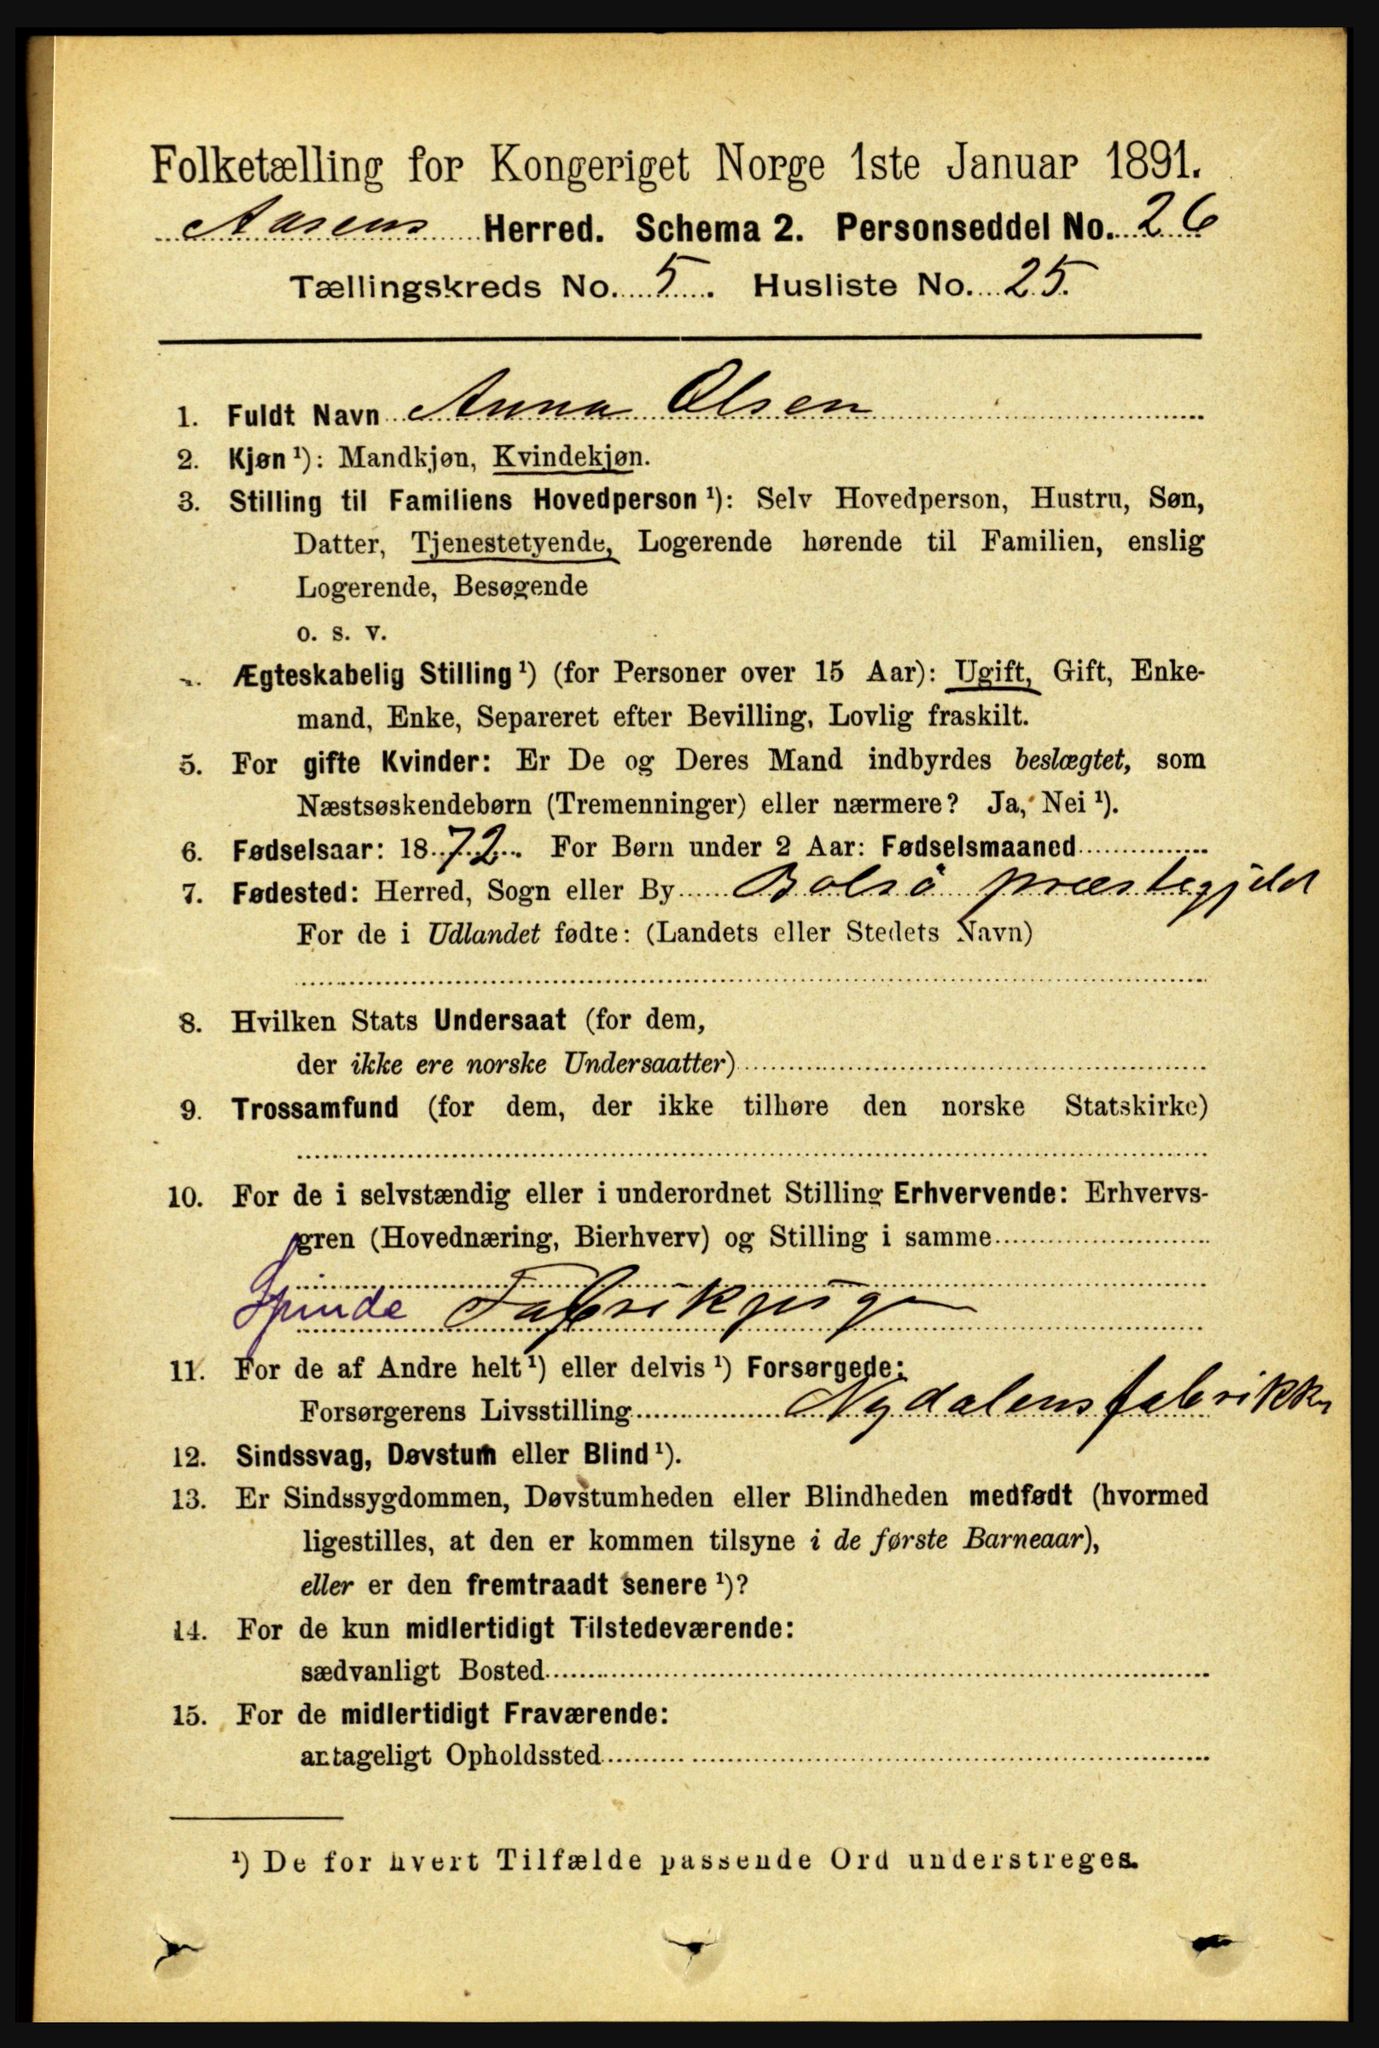 Folketælling for Kongeriget Norge 1ste Januar 1891.
Aasens Herred. Schema 2. Personseddel No. 26
Tællingskreds No. 5. Husliste No. 25.
1. Fuldt Navn Anna Olsen
2. Kjøn ¹): Mandkjøn, Kvindekjøn.
3. Stilling til Familiens Hovedperson ¹): Selv Hovedperson, Hustru, Søn,
Datter, Tjenestetyende, Logerende hørende til Familien, enslig
Logerende, Besøgende
o. s. v.
Ægteskabelig Stilling ¹) (for Personer over 15 Aar): Ugift, Gift, Enke-
mand, Enke, Separeret efter Bevilling, Lovlig fraskilt.
5. For gifte Kvinder: Er De og Deres Mand indbyrdes beslægtet, som
Næstsøskendebørn (Tremenninger) eller nærmere? Ja, Nei ¹).
6. Fødselsaar: 1872. For Børn under 2 Aar: Fødselsmaaned
7. Fødested: Herred, Sogn eller By Bolsö præstegjeld
For de i Udlandet fødte: (Landets eller Stedets Navn)
8. Hvilken Stats Undersaat (for dem,
der ikke ere norske Undersaatter)
9. Trossamfund (for dem, der ikke tilhøre den norske Statskirke)
10. For de i selvstændig eller i underordnet Stilling Erhvervende: Erhvervs-
gren (Hovednæring, Bierhverv) og Stilling i samme
Spinde Fabrikpige
11. For de af Andre helt ¹) eller delvis ¹) Forsørgede:
Forsørgerens Livsstilling Nydalens fabrikker
12. Sindssvag, Døvstum eller Blind ¹).
13. Er Sindssygdommen, Døvstumheden eller Blindheden medfødt (hvormed
ligestilles, at den er kommen tilsyne i de første Barneaar),
eller er den fremtraadt senere ¹)?
14. For de kun midlertidigt Tilstedeværende:
sædvanligt Bosted
15. For de midlertidigt Fraværende:
antageligt Opholdssted
¹) De for hvert Tilfælde passende Ord understreges.